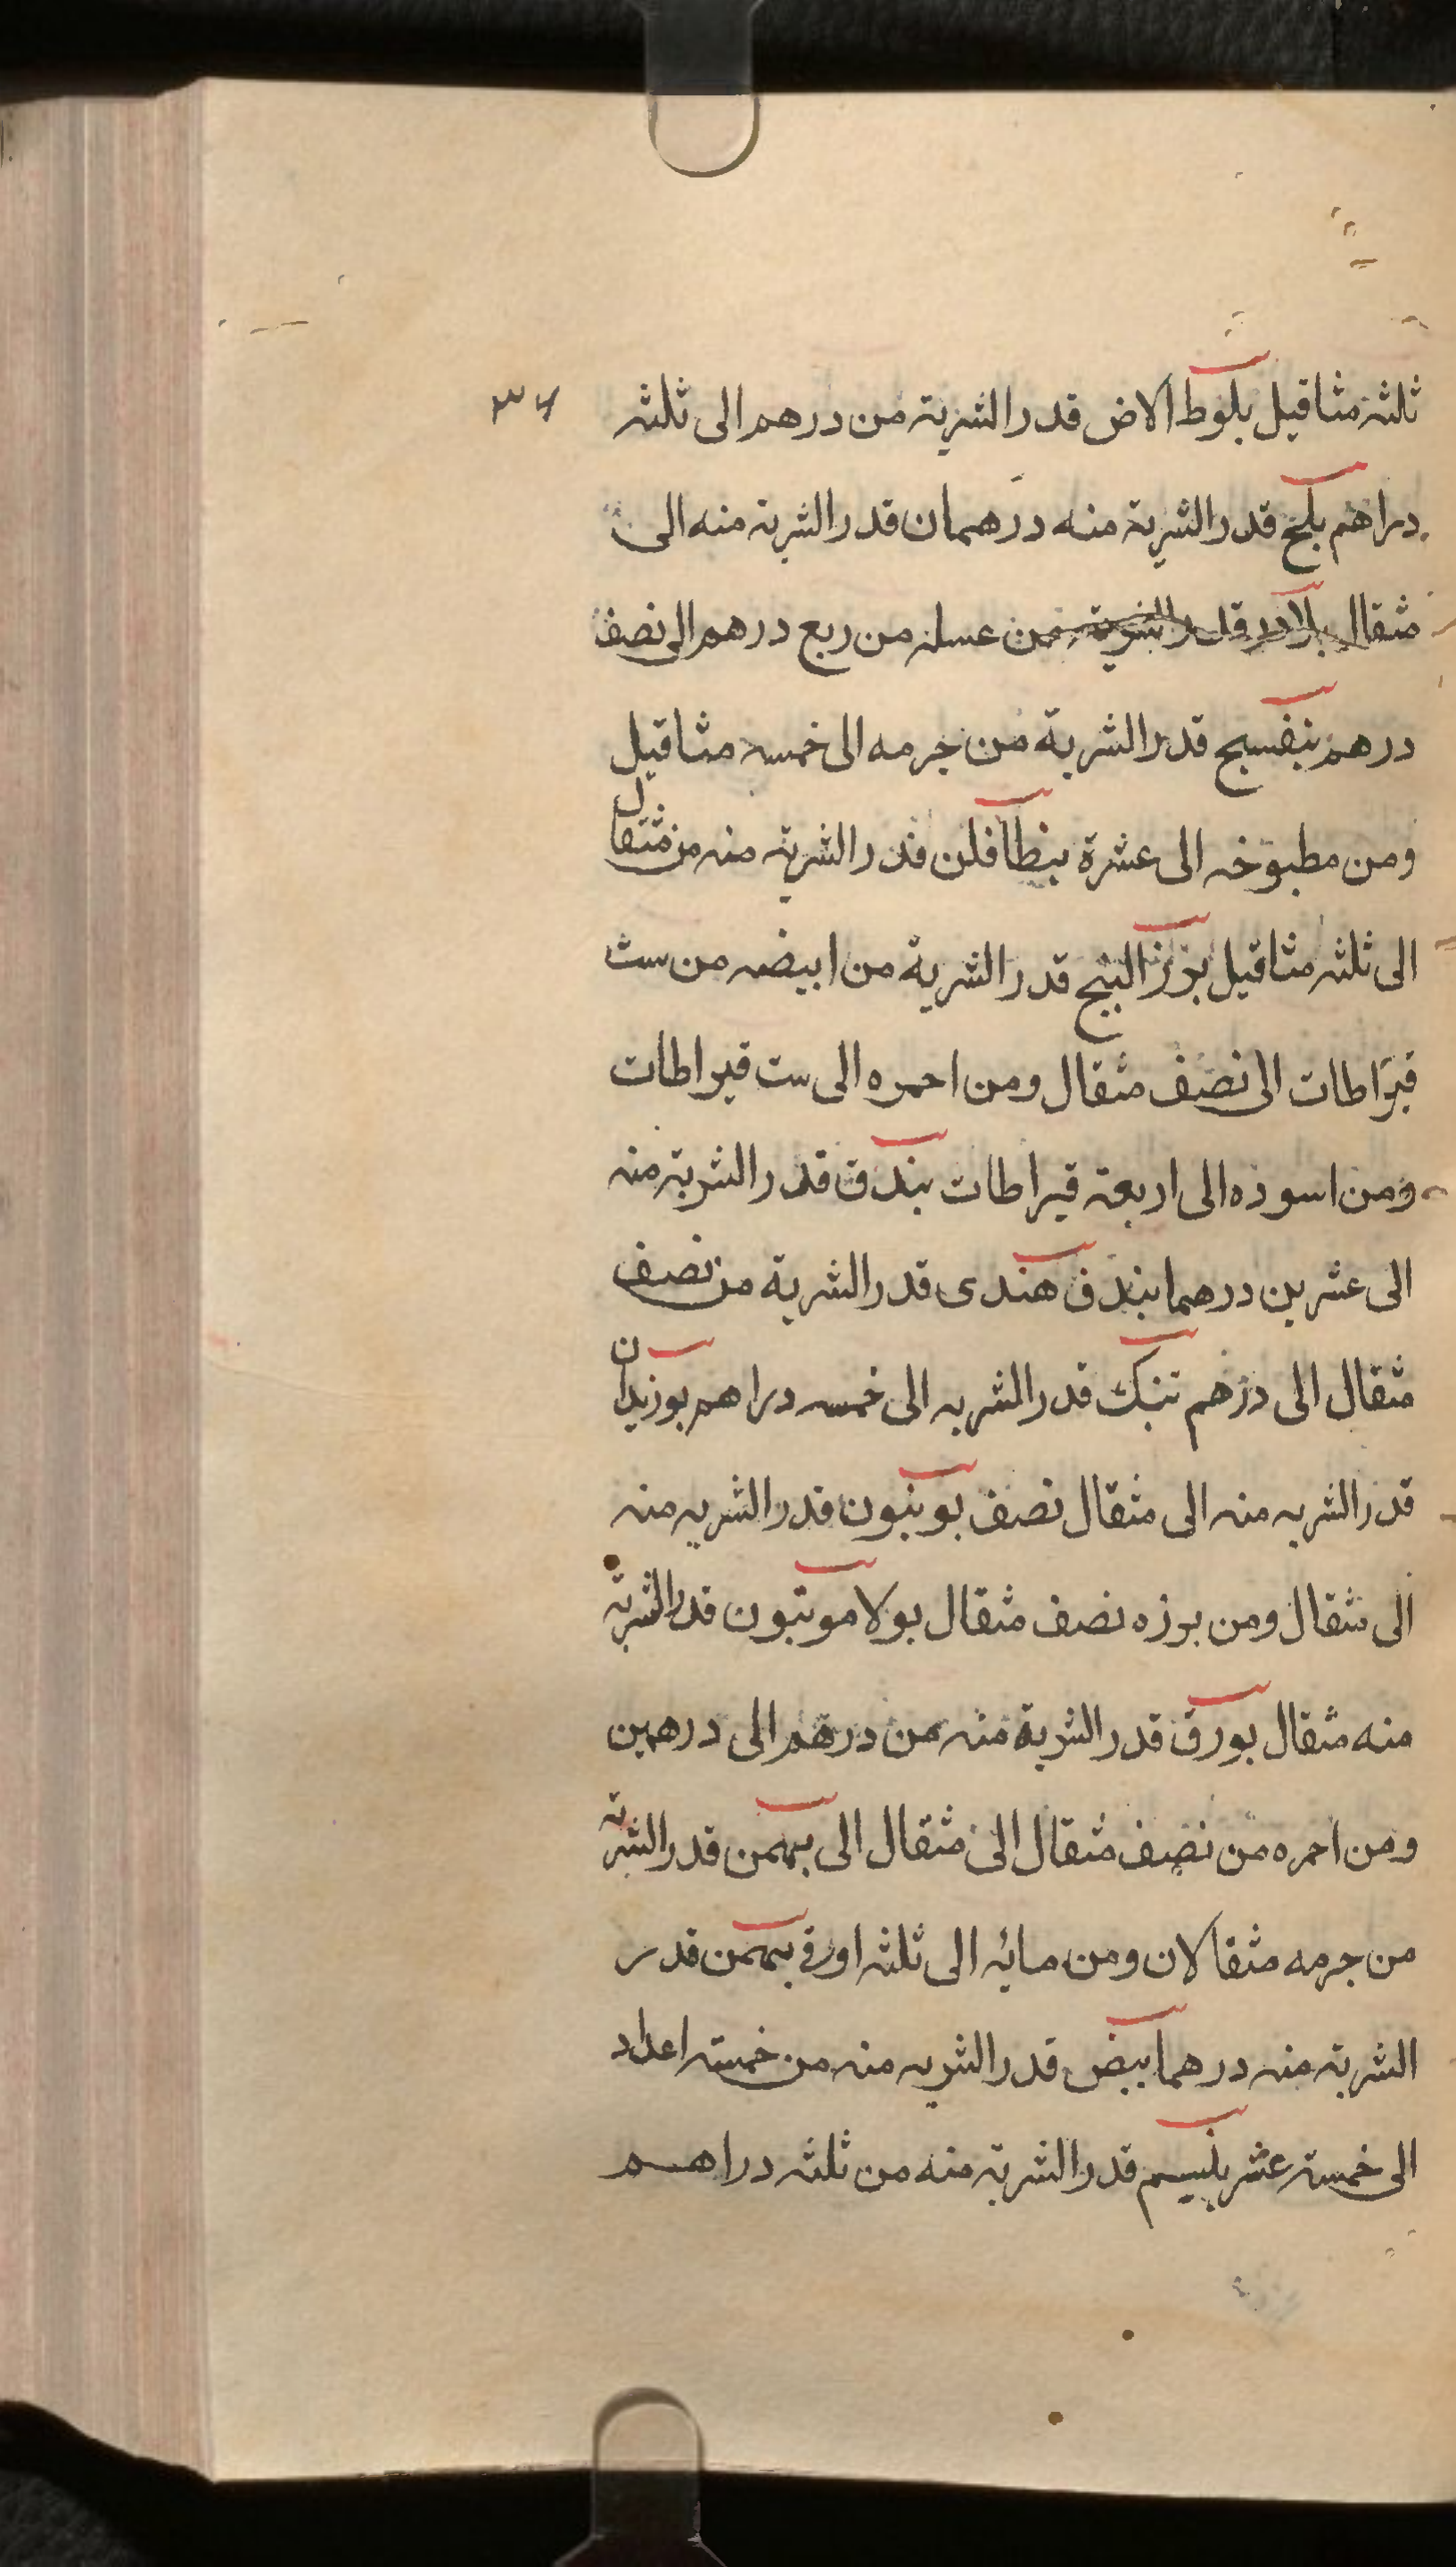 ثلثة مثاقيل بلوط الارض قدر الشربة من درهم الى ثلثه
دراهم بلح قدر الشربة منه درهمان قدر الشربة منه الى
مثقال بلادر قدر الشربة من عسله من ربع درهم الى نصف
درهم بنفسج قدر الشربة من جرمه الى خمسه مثاقيل
ومن مطبوخه الى عشرة بنطافلن قدر الشربة منه من مثقال
الى ثلثه مثاقيل بزر البنج قدر الشربة من ابيضه من ست
قيراطات الى نصف مثقال ومن احمره الى ست قيراطات
ومن اسوده الى اربعة قيراطات بندق قدر الشربة منه
الى عشرين درهما بندق هندى قدر الشربة من نصف
مثقال الى درهم تنبك قدر الشربه الى خمسه دراهم بوزيدان
قدر الشربه منه الى مثقال نصف بونيون قدر الشربه منه
الى مثقال ومن بزره نصف مثقال بولامونيون قدر الشربة
منه مثقال بورق قدر الشربة منه من درهم الى درهمين
ومن احمره من نصف مثقال الى مثقال الى بهمن قدر الشربة
من جرمه مثقالان ومن مائه الى ثلثه اواق بهمن قدر
الشربة منه درهما بيض قدر الشربه منه من خمسة اعداد
الى خمسة عشر بلسم قدر الشربة منه من ثلثه دراهم